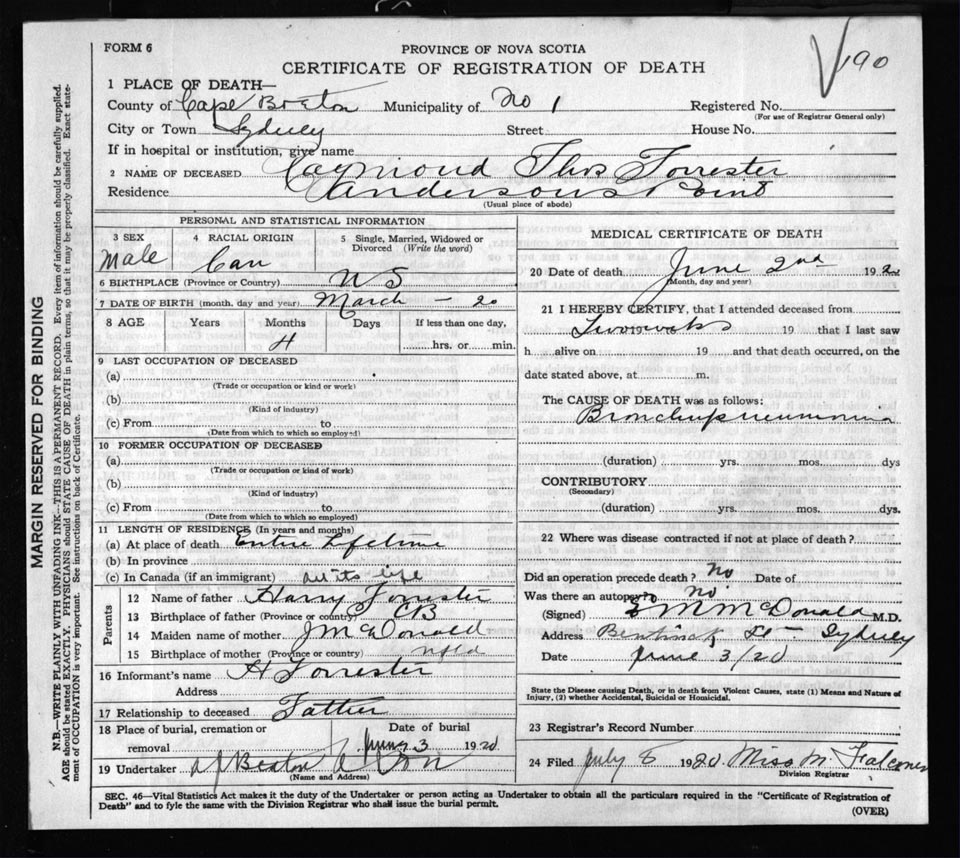 190
FORM 6
PROVINCE OF NOVA SCOTIA
CERTIFICATE OF REGISTRATION OF DEATH
1 PLACE OF DEATH—
County of Cape Breton Municipality of No 1 Registered No.
(For use of Registrar General only)
City or Town Sydney Street House No.
If in hospital or institution, give name
2 NAME OF DECEASED Raymond Thos Forrester
Residence Andersons Point
(Usual place of abode)
PERSONAL AND STATISTICAL INFORMATION
3 SEX Male
4 RACIAL ORIGIN Can
5 Single, Married, Widowed or Divorced (Write the word)
6 BIRTHPLACE (Province or Country) N S
7 DATE OF BIRTH (month, day and year) March - 20
8 AGE Years Months Days If less than one day,
4 hrs. or min.
9 LAST OCCUPATION OF DECEASED
(a)
(Trade or occupation or kind or work)
(b)
(Kind of industry)
(c) From to
(Date from which to which so employed)
10 FORMER OCCUPATION OF DECEASED
(a)
(Trade or occupation or kind of work)
(b)
(Kind of industry)
(c) From to
(Date from which to which so employed)
11 LENGTH OF RESIDENCE (In years and months)
(a) At place of death Entire Lifetime
(b) In province
(c) In Canada (if an immigrant) all its life
Parents
12 Name of father Harry Forrester
13 Birthplace of father (Province or country) CB
14 Maiden name of mother J McDonald
15 Birthplace of mother (Province or country) Nfld
16 Informant's name H Forrester
Address
17 Relationship to deceased Father
18 Place of burial, cremation or removal
Date of burial
June 3 1920
19 Undertaker A J Beaton & Son
(Name and Address)
MEDICAL CERTIFICATE OF DEATH
20 Date of death June 2nd 192
(Month, day and year)
21 I HEREBY CERTIFY, that I attended deceased from
Two weeks 19 that I last saw
h alive on 19 and that death occurred, on the
date stated above, at m.
The CAUSE OF DEATH was as follows:
Bronchopneumonia
(duration) yrs. mos. dys
CONTRIBUTORY
(Secondary)
(duration) yrs. mos. dys.
22 Where was disease contracted if not at place of death?
Did an operation precede death? No Date of
Was there an autopsy? No
(Signed) M McDonald M.D.
Address Bentinck St - Sydney
Date June 3/20
State the Disease causing Death, or in death from Violent Causes, state (1) Means and Nature of
Injury, (2) whether Accidental, Suicidal or Homicidal.
23 Registrar's Record Number
24 Filed July 1920. Miss M Falconer
Division Registrar
SEC. 46—Vital Statistics Act makes it the duty of the Undertaker or person acting as Undertaker to obtain all the particulars required in the "Certificate of Registration of
Death" and to fyle the same with the Division Registrar who shall issue the burial permit.
(OVER)
MARGIN RESERVED FOR BINDING
N.B.—WRITE PLAINLY WITH UNFADING INK—THIS IS A PERMANENT RECORD. Every item of information should be carefully supplied.
AGE should be stated EXACTLY. PHYSICIANS should STATE CAUSE OF DEATH in plain terms, so that it may be properly classified. Exact state-
ment of OCCUPATION is very important. See instructions on back of Certificate.